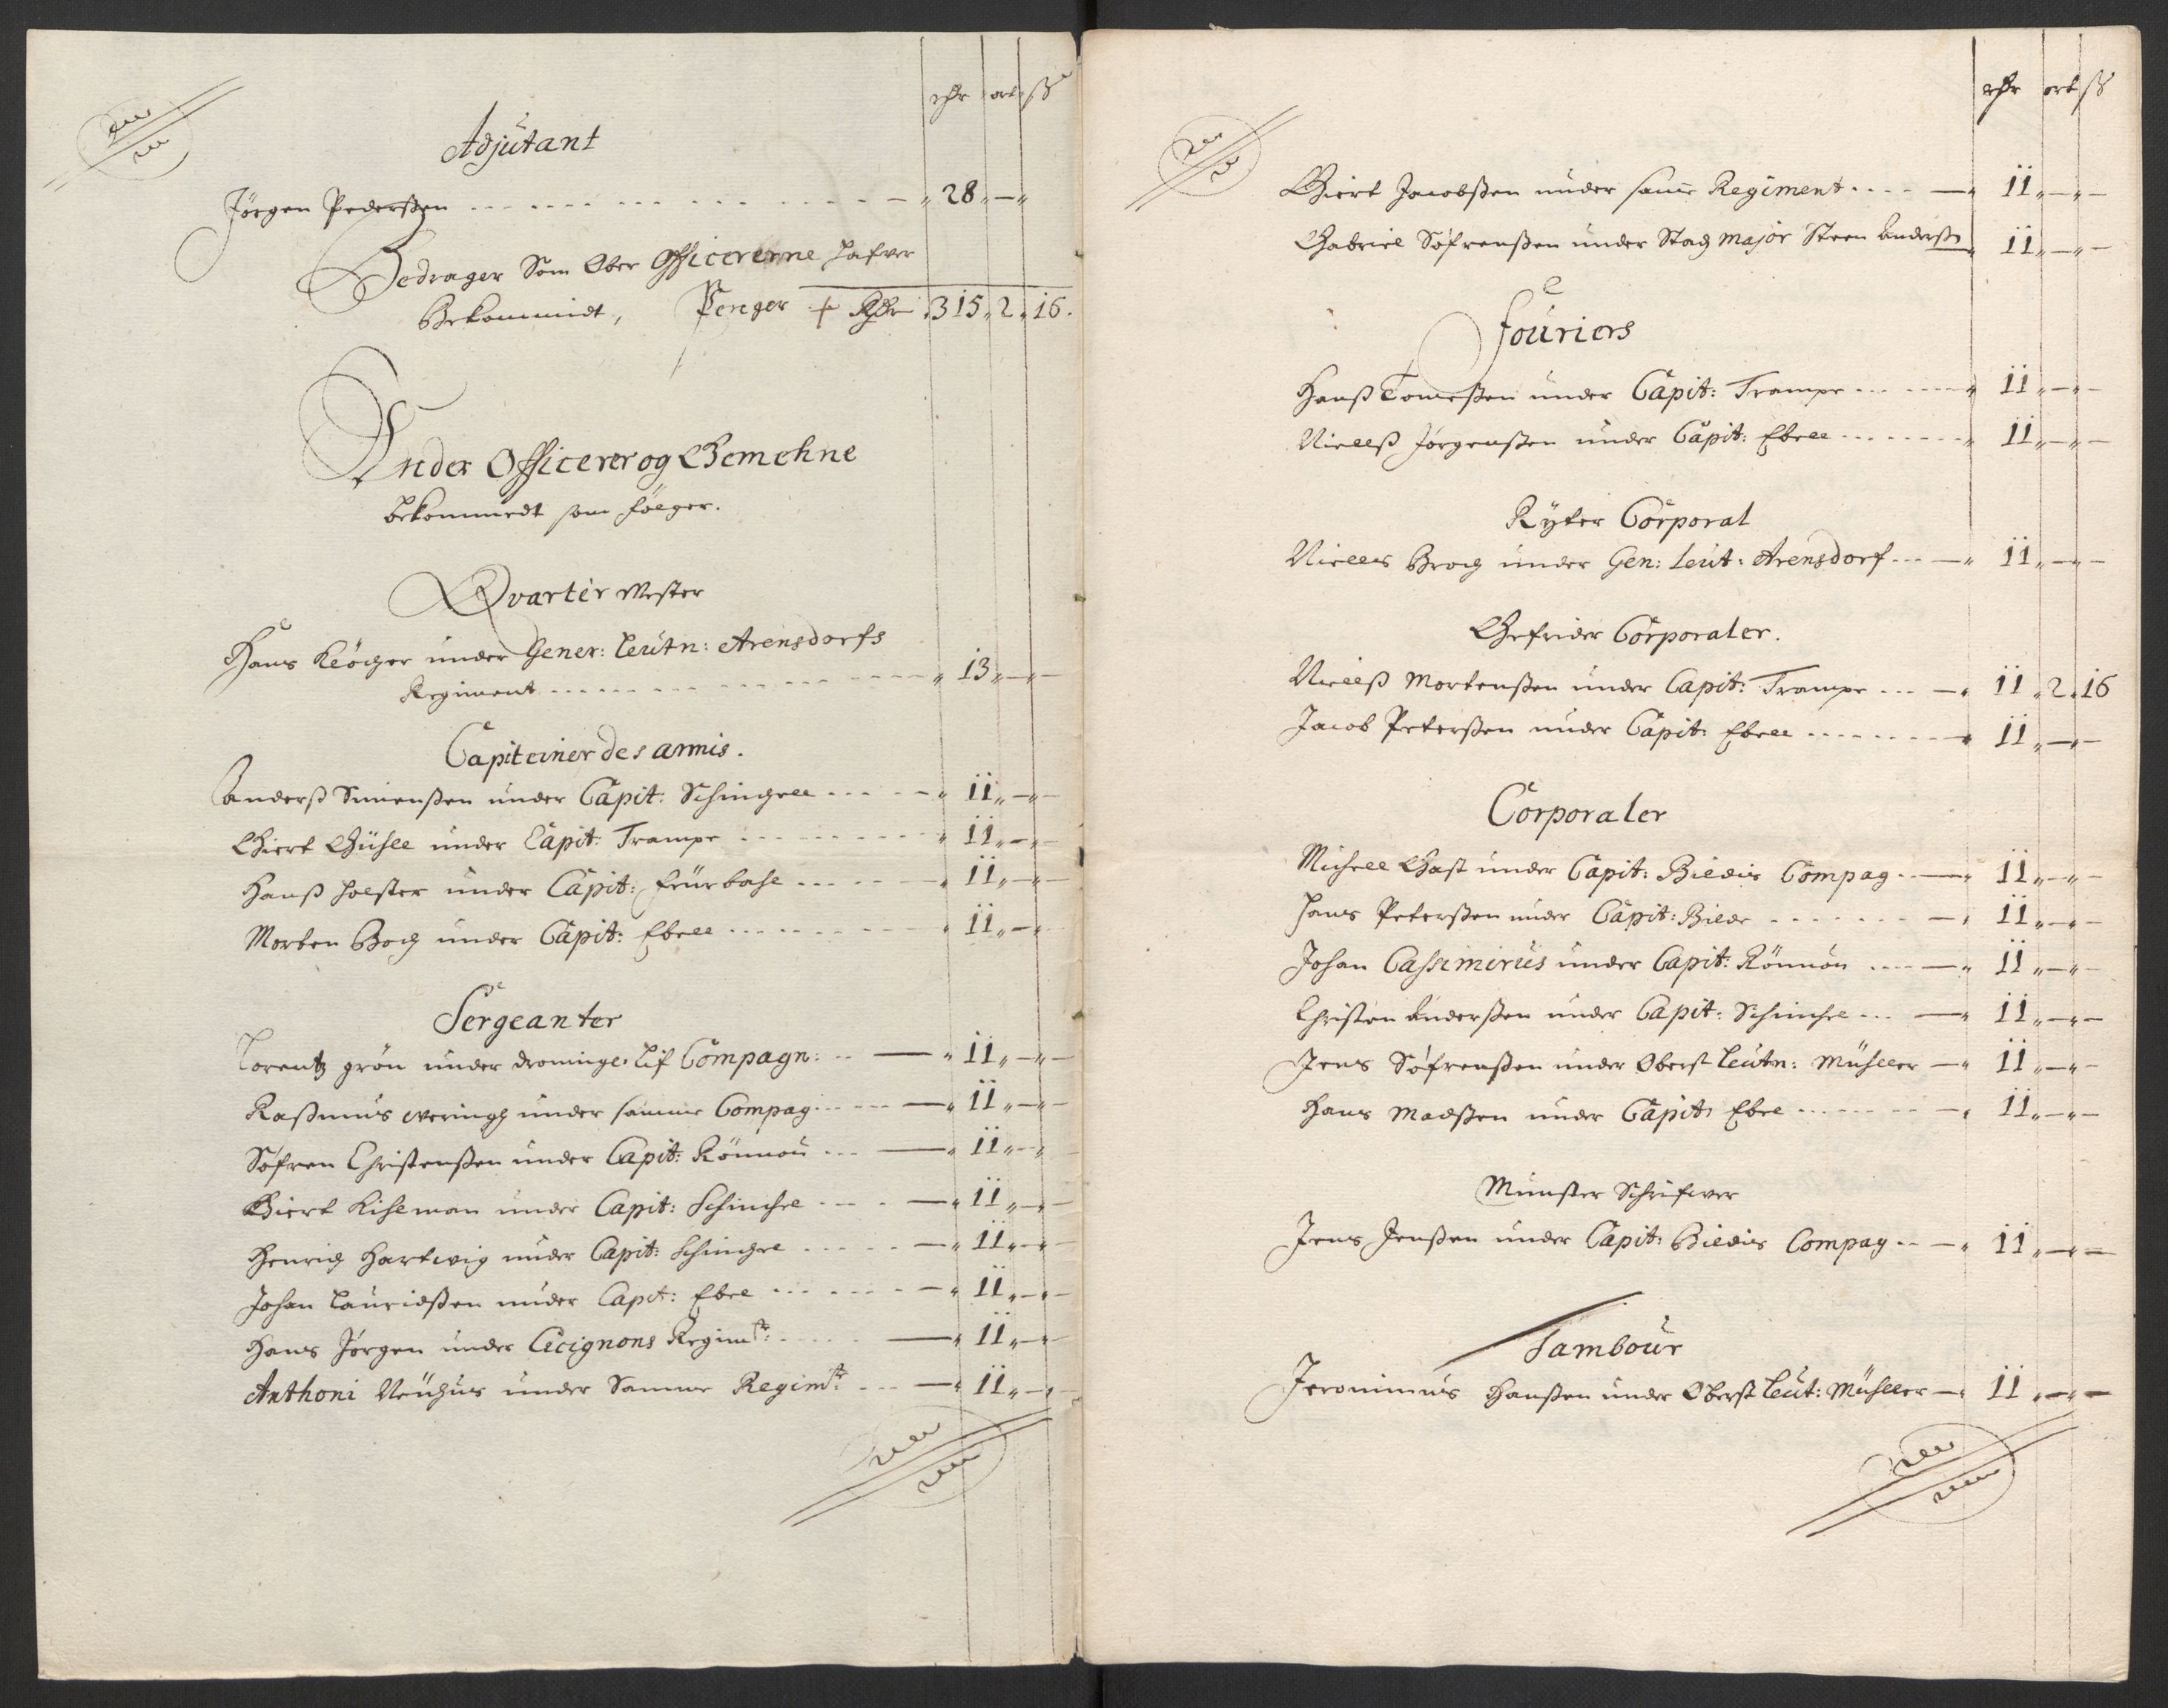 rdr ort ß
Adjutant
Jörgen Pederßen 28
Bedrager Som Ober Officererne hafver
Bekommidt, Penger Rdr 315 2 16
Under Officerer og Gemehne
bekommedt som fölger.
Qvartér Mester
Hans Klöcher under Gener: Leutn: Arensdorfs
Regiment 13
Capiteiner des armis.
Anderß Simenßen under Capit: Schinchell 11
Giert Gühle under Capit: Trampe 11
Hanß Holster under Capit: 11
Morten Boch under Capit: Ebell 11
Sergeanter
Lorentz grön under Lif Compagn: 11
Raßmus under samme Compag 11
Söfren Christenßen under Capit: Rönnou 11
Giert Kihlman under Capit: Schinchel 11
Henrich Hartwig under Capit: Schinchel 11
Johan Lauridßen under Capt: Ebel 11
Hans Jörgen under Cicignons Regimt: 11
Anthoni under Samme Regimt: 11
rdr ort ß
Giert Jacobßen under samme Regiment 11
Gabriel Söfrenßen under Stadz Major Steen Anderß: 11
fouriers
Hanß Tomeßen under Capit: Trampe 11
Nielß Jörgenßen under Capit: Ebell 11
Ryter Corporal
Niells Broch under Gen: Leut: Arensdorf 11
Gefrider Corporaler.
Nielß Mortenßen under Capit: Trampe 11 2 16
Jacob Peterßen under Capit: Ebell 11
Corporaler
Michell Gast under Capit: Bildis Compag 11
Hans Peterßen under Capit: Bilde 11
Johan Cassimirus under Capit: Rönnou 11
Christen Anderßen under Capit: Schinchel 11
Jens Söfrenßen under Oberst Leutn: Mühller 11
Hans Madßen under Capit: Ebel 11
Munster Schrifwer
Jens Jenßen under Capit: Bildis Compag 11
Tambour
Jeronimus Hanßen under Oberst Leut: Mühller 11